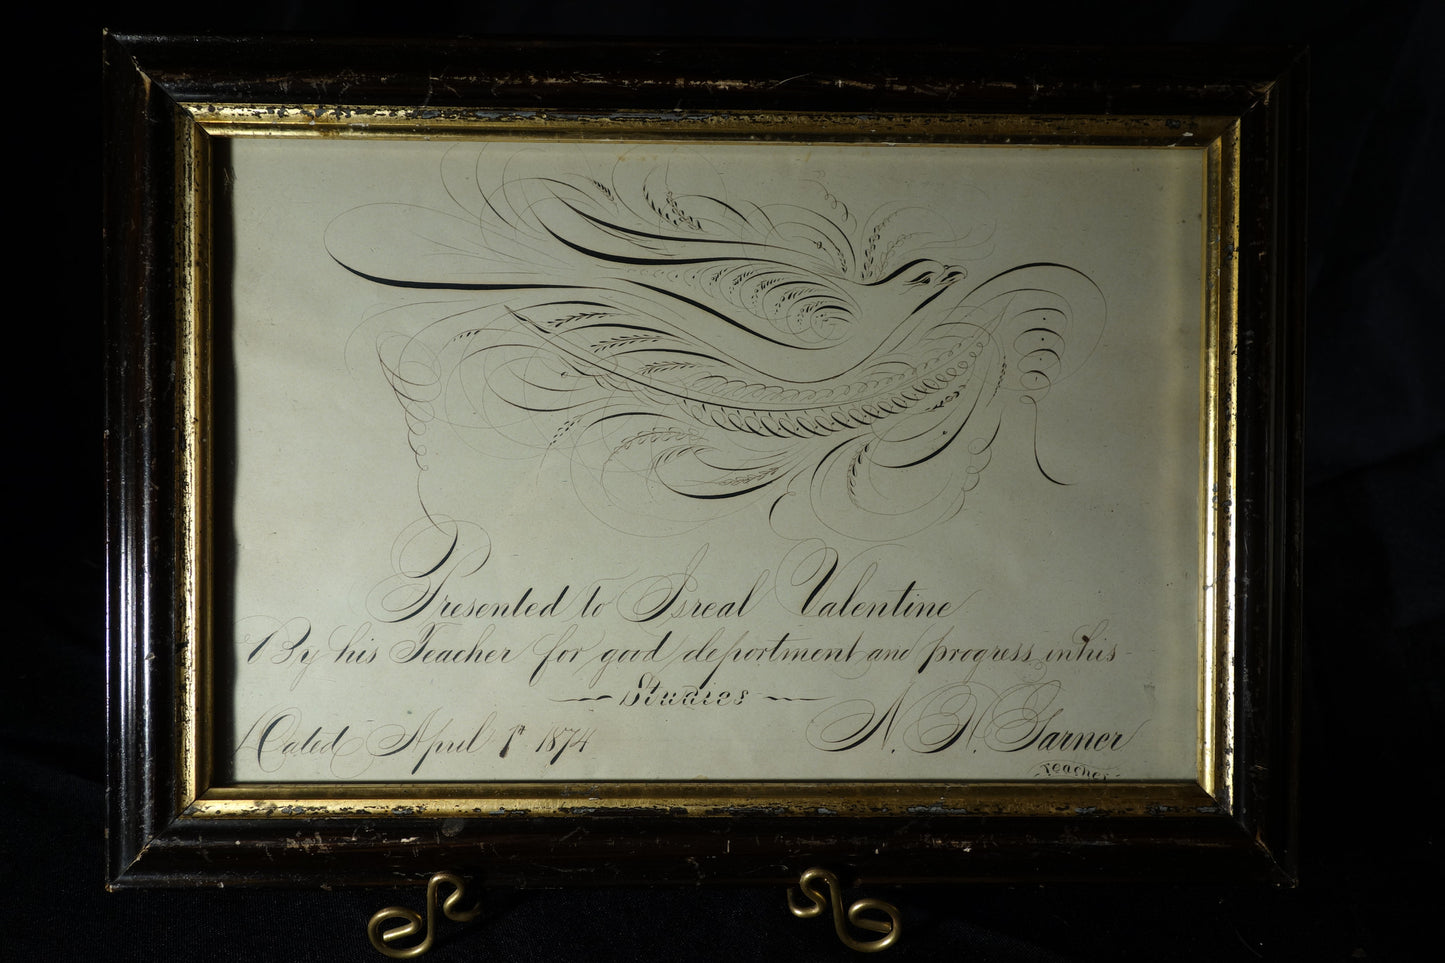 Presented to Isreal Valentine
By his Teacher for good deportment and progress in his
Studies
Dated April 1st 1874
N. W. Garner
Teacher